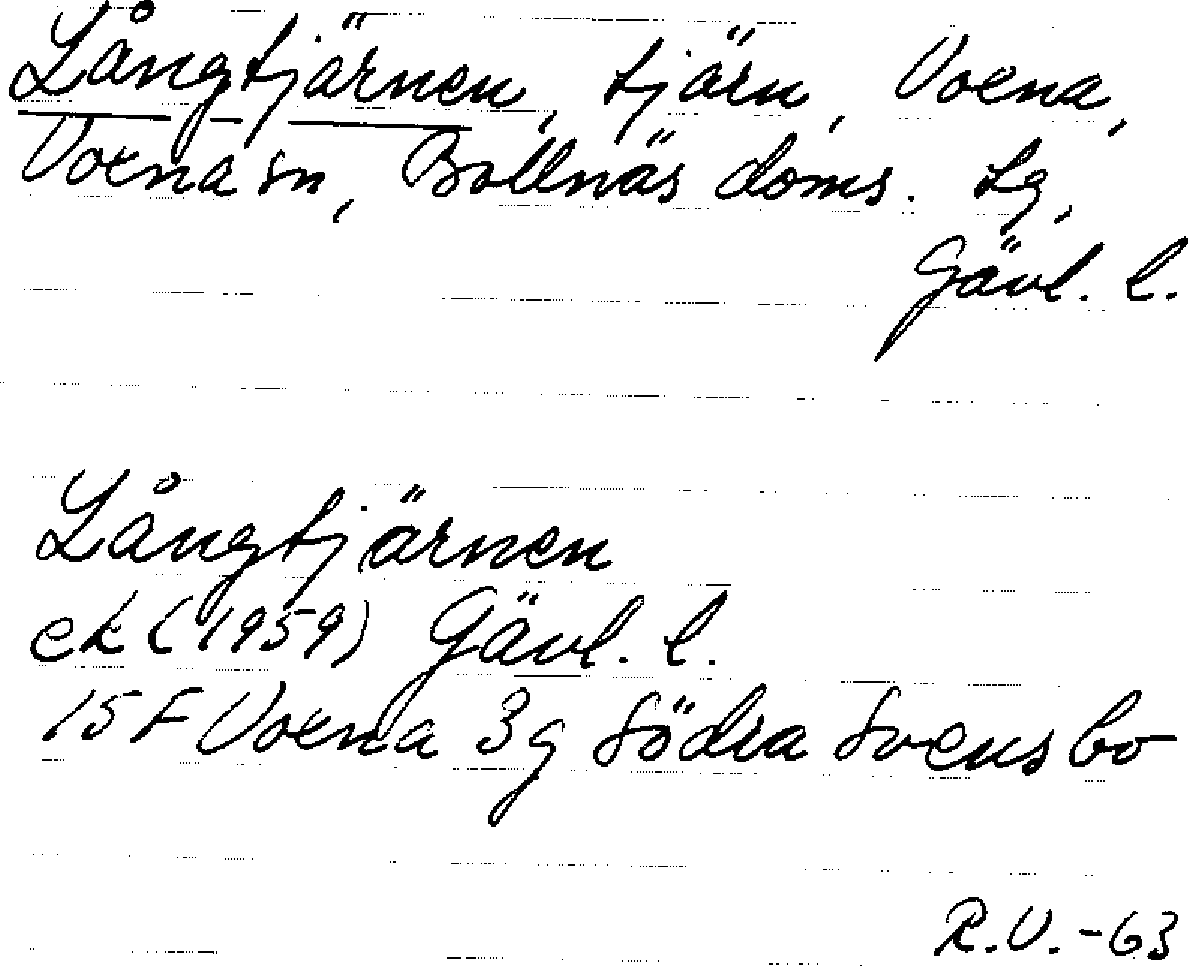 Långtjärnen, tjärn, Voxna,
Voxna sn, Bollnäs doms. tg,
Gävl. l.
Långtjärnen
ek (1959) Gävl. l.
15F Voxna 3g Södra Svensbo
R.V.-63